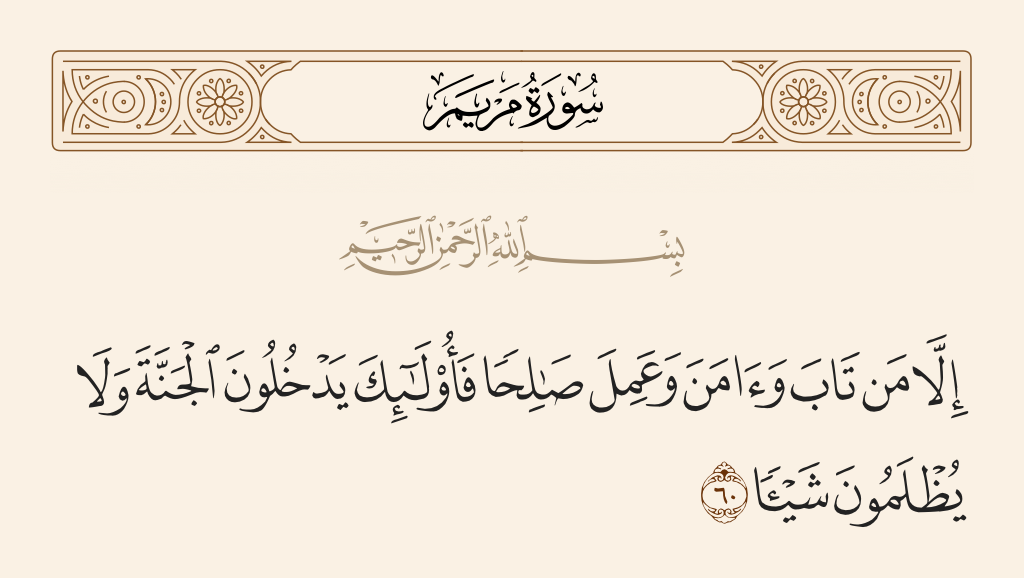 سُورَةُ مَرْيَمَ
بِسْمِ ٱللَّهِ ٱلرَّحْمَٰنِ ٱلرَّحِيمِ
إِلَّا مَن تَابَ وَءَامَنَ وَعَمِلَ صَٰلِحًا فَأُو۟لَٰٓئِكَ يَدْخُلُونَ ٱلْجَنَّةَ وَلَا
يُظْلَمُونَ شَيْـًٔا ٦٠